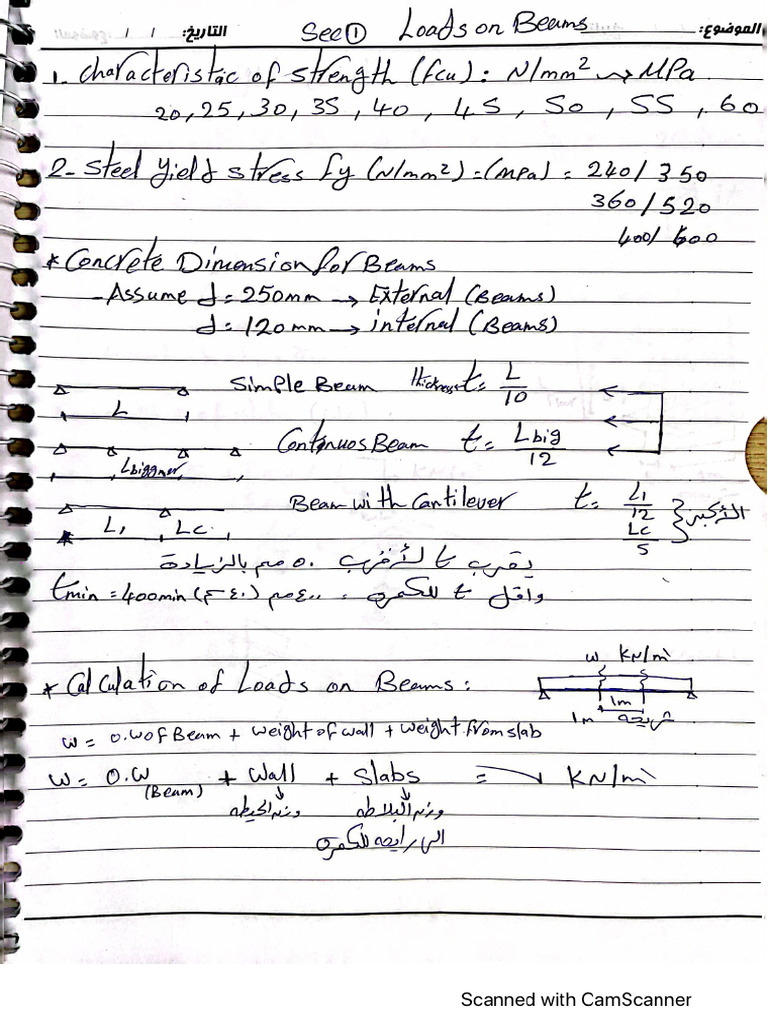 الموضوع: Sec ① Loads on Beams التاريخ: / /
1. Characteristic of strength (fcu): N/mm² → MPa
20, 25, 30, 35, 40, 45, 50, 55, 60
2- Steel yield stress fy (N/mm²) = (MPa) = 240/350
360/520
400/600
* Concrete Dimension for Beams
- Assume d = 250mm → External (Beams)
d = 120mm → internal (Beams)
Simple Beam thickness t = L/10
L
Continuos Beam t = Lbig/12
Lbigger
Beam with Cantilever t = L1/12 Lc/5 } الأكبر
L1 Lc
يقرب t لأقرب ٥٠ مم بالزيادة
واقل t للكمره ٤٠٠ مم (٤٠ سم) tmin = 400min
* Calculation of Loads on Beams:
w KN/m'
1m
1m شريحة
w = o.w of Beam + weight of wall + weight from slab
w = O.W (Beam) + Wall + Slabs = → KN/m'
وزن الحيطه وزن البلاطه
الى رايحه للكمره
Scanned with CamScanner